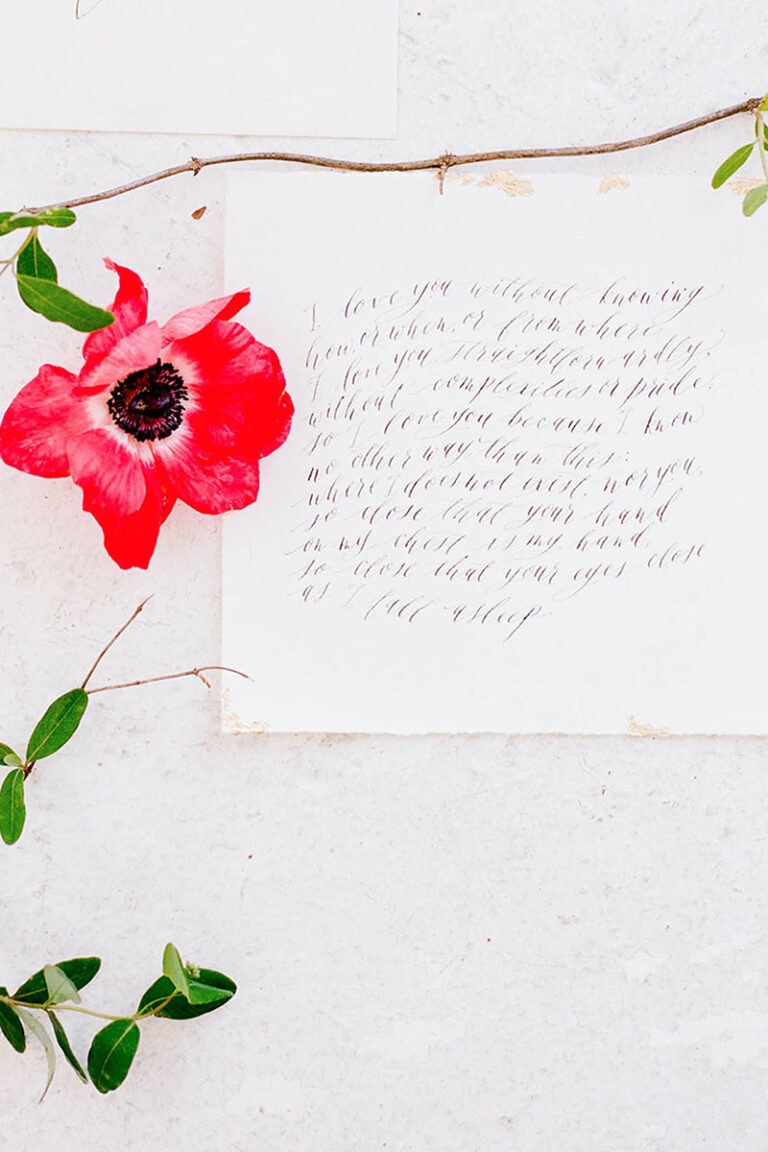 I love you without knowing
how, or when, or from where.
I love you straightforwardly,
without complexities or pride;
so I love you because I know
no other way than this:
where I does not exist, nor you,
so close that your hand
on my chest is my hand,
so close that your eyes close
as I fall asleep.